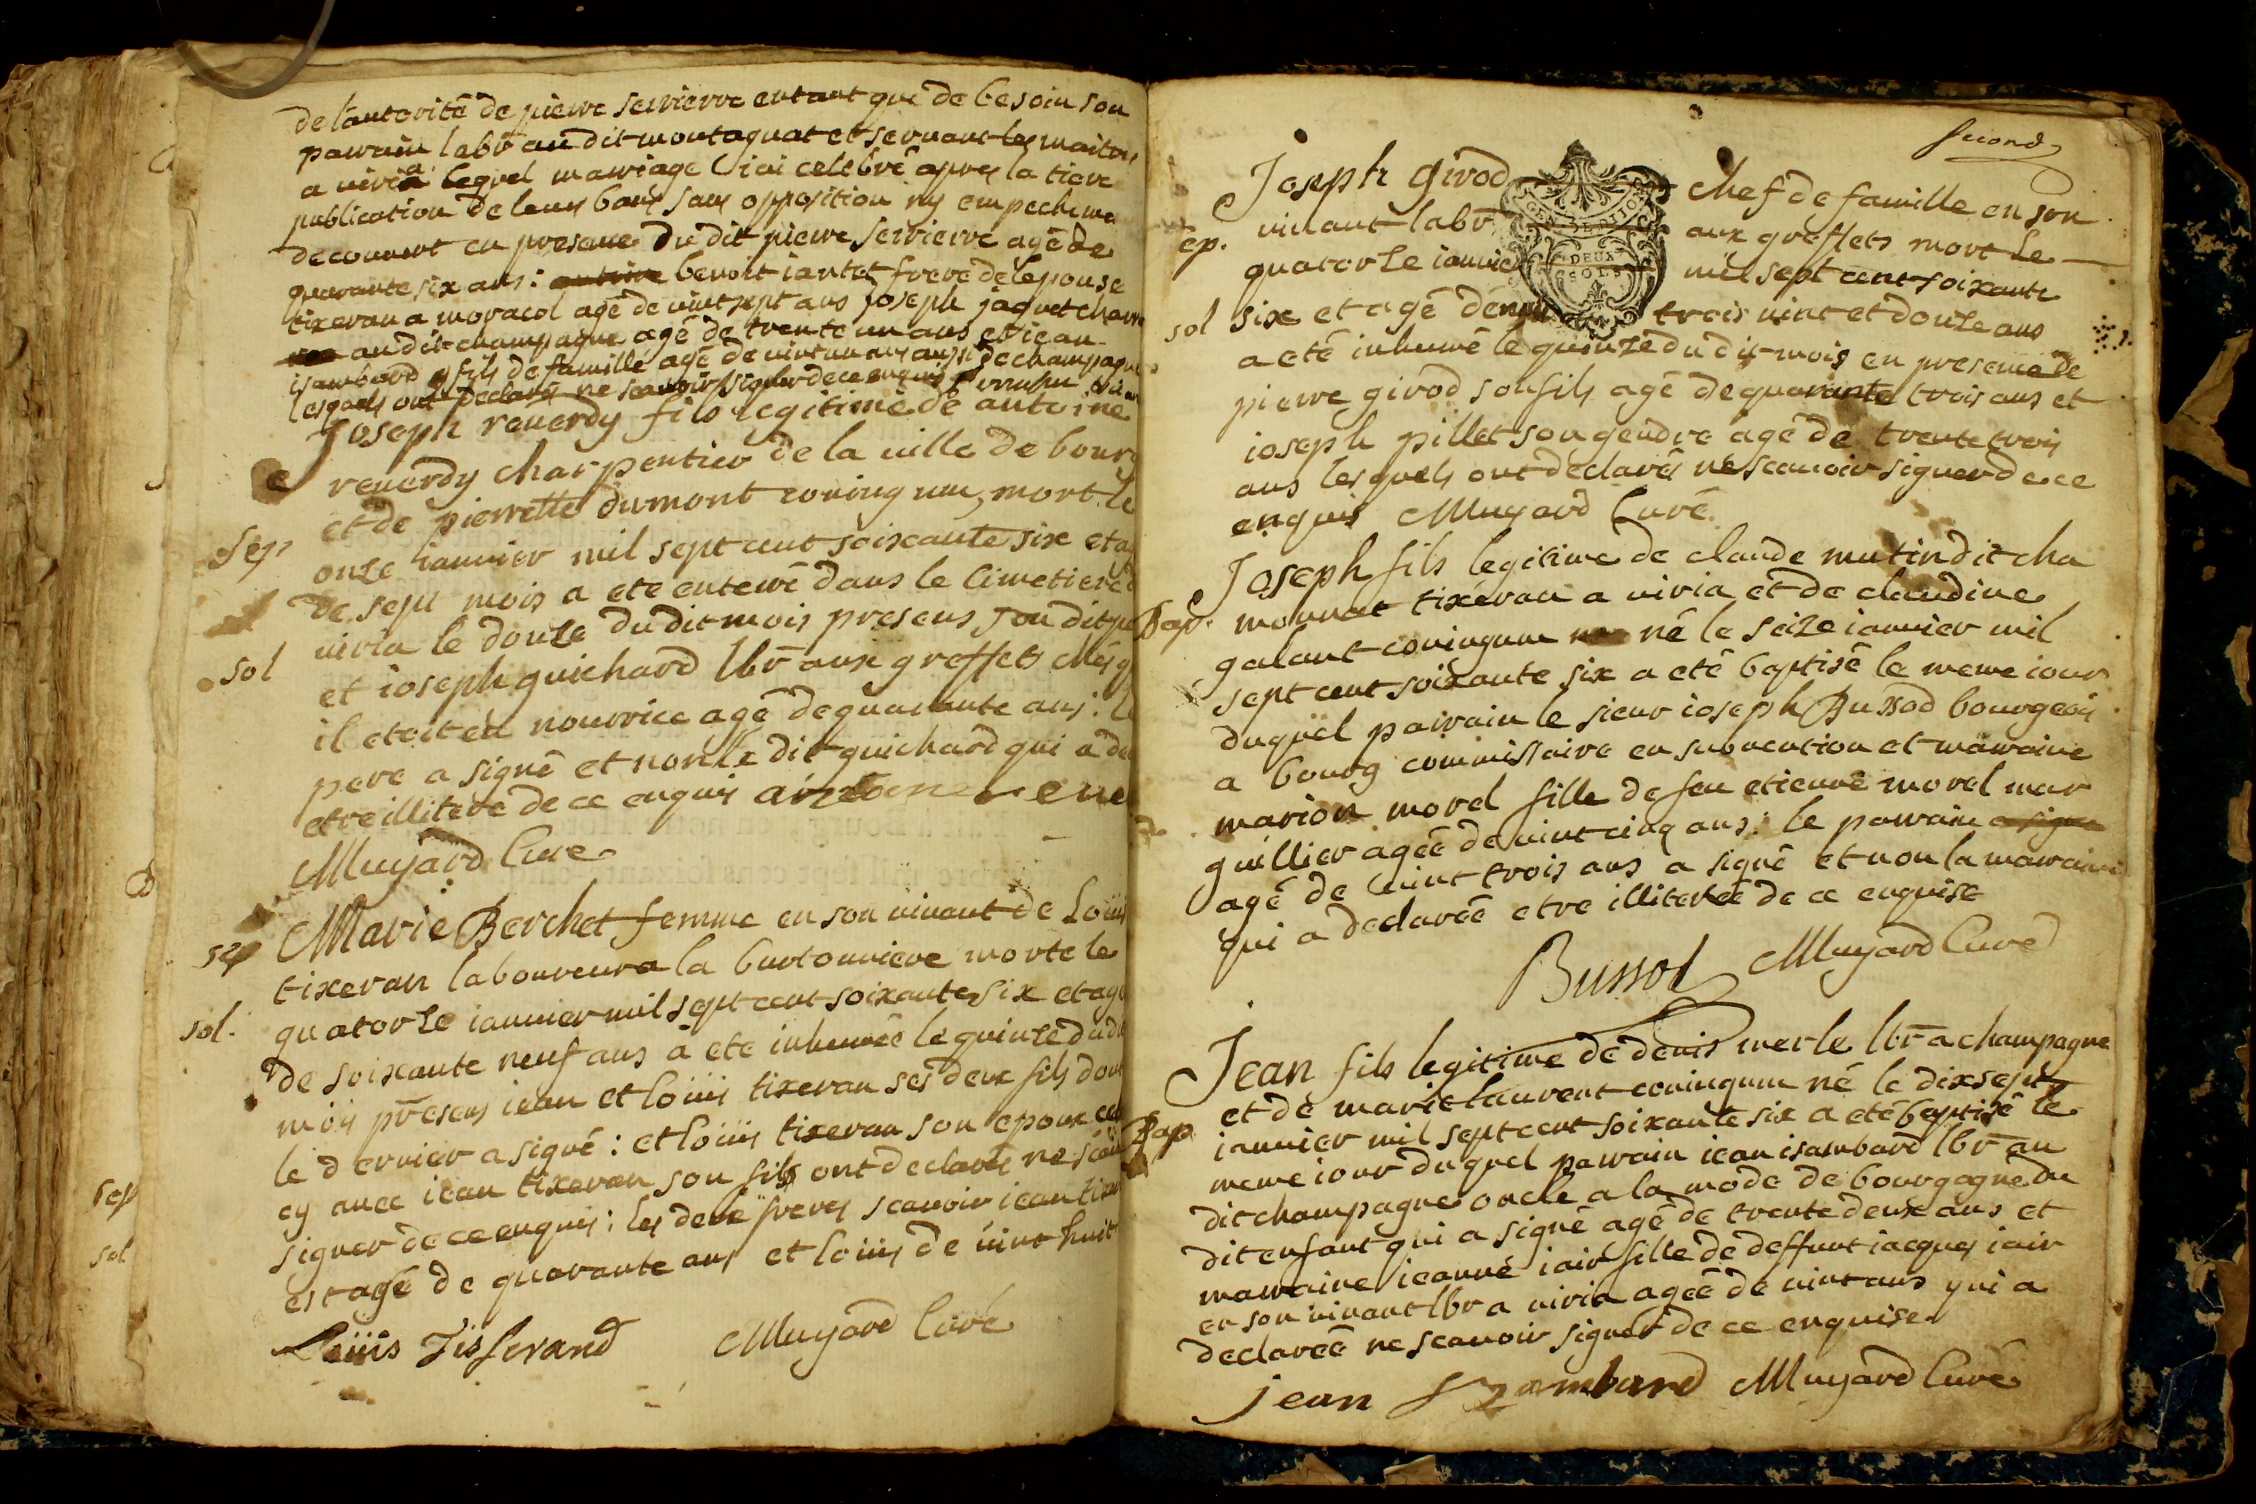 de l'autorité de pierre servierre entant que de besoin son
parrain labr au dit montagnat et servant les maitres
a viria lequel marriage j'ai celebré apres la tierce
publication de leurs bans sans opposition ny empechement
decouvert en presence du dit pierre servierre agé de
quarante six ans : benoit iantet frere de l'epouse
tixeran a moracol agé de vint sept ans joseph jaquet
au dit champagne agé de trente un ans et iean
isambard fils de famille agé de vint un ans aussi de champagne
lesquels ont declarés ne scavoir signer de ce enquis
Joseph reverdy fils legitime de antoine
reverdy charpentier de la ville de bourg
et de pierrette dumont coningum, mort le
Sep
onze ianvier mil sept cent soixante six et agé
de sept mois a ete enterré dans le cimetiere
viria le douze du dit mois presens son dit pere
sol
et ioseph guichard lbr aux greffets chés
il etoit en nourrice agé de quarante ans :
pere a signé et non le dit guichard qui a
etre illiteré de ce enquis antoine
Muyard Curé
Marie Berchet femme en son vivant de Loüis
sep
tixeran laboureur a la burtonniere morte le
sol.
quatorze ianvier mil sept cent soixante six et agée
de soixante neuf ans a ete inhumée le quinze du dit
mois presens iean et loüis tixeran ses deux fils dont
le dernier a signé : et loüis tixeran son epoux
cy avec iean tixeran son fils ont declarés ne
sep
signer de ce enquis : les deux freres scavoir iean
sol
est agé de quarante ans et loüis de vint huit
Loüis Tisserand Muyard Curé
second
Joseph girod chef de famille en son
GEN DE DIJON
DEUX
SOLS
vivant labr aux greffets mort le
ep.
quatorze ianvier mil sept cent soixante
sol
six et agé d'environ trois vint et douze ans
a eté inhumé le quinze du dit mois en presence de
pierre girod son fils agé de quarante trois ans et
ioseph pillet son gendre agé de trente trois
ans lesquels ont declarés ne scavoir signer de ce
enquis Muyard Curé
Joseph fils legitime de claude mutin dit cha
Bap.
monnet tixeran a viria et de claudine
galant coningum né le seize ianvier mil
sept cent soixante six a eté baptisé le meme iour
duquel parrain le sieur ioseph Bussod bourgeois
a bourg commissaire en subvention et marraine
marion morel fille de feu etienne morel mar
guillier agée de vint cinq ans : le parrain a signe
agé de vint trois ans a signé et non la marraine
qui a declarée etre illiterée de ce enquise
Bussod Muyard Curé
Jean fils legitime de denis merle lbr a champagne
et de marie laurent coningum né le dixsept
Bap.
ianvier mil sept cent soixante six a eté baptisé le
meme iour duquel parrain iean isambard lbr au
dit champagne oncle a la mode de bourgogne du
dit enfant qui a signé agé de trente deux ans et
marraine ieanne iair fille de deffunt iacques iair
en son vivant lbr a viria agée de vint ans qui a
declarée ne scavoir signer de ce enquise
jean Izambard Muyard Curé